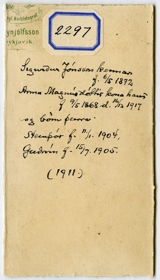 njólfsson
ykjavík
2297
Sigurður Jónsson kennari
f. 6/5 1872
Anna Magnúsdóttir kona hans
f 9/5 1868 d. 12/12 1917
og börn þeirra
Steinþór f. 11/1. 1904.
Guðrún f. 15/7. 1905.
(1911)